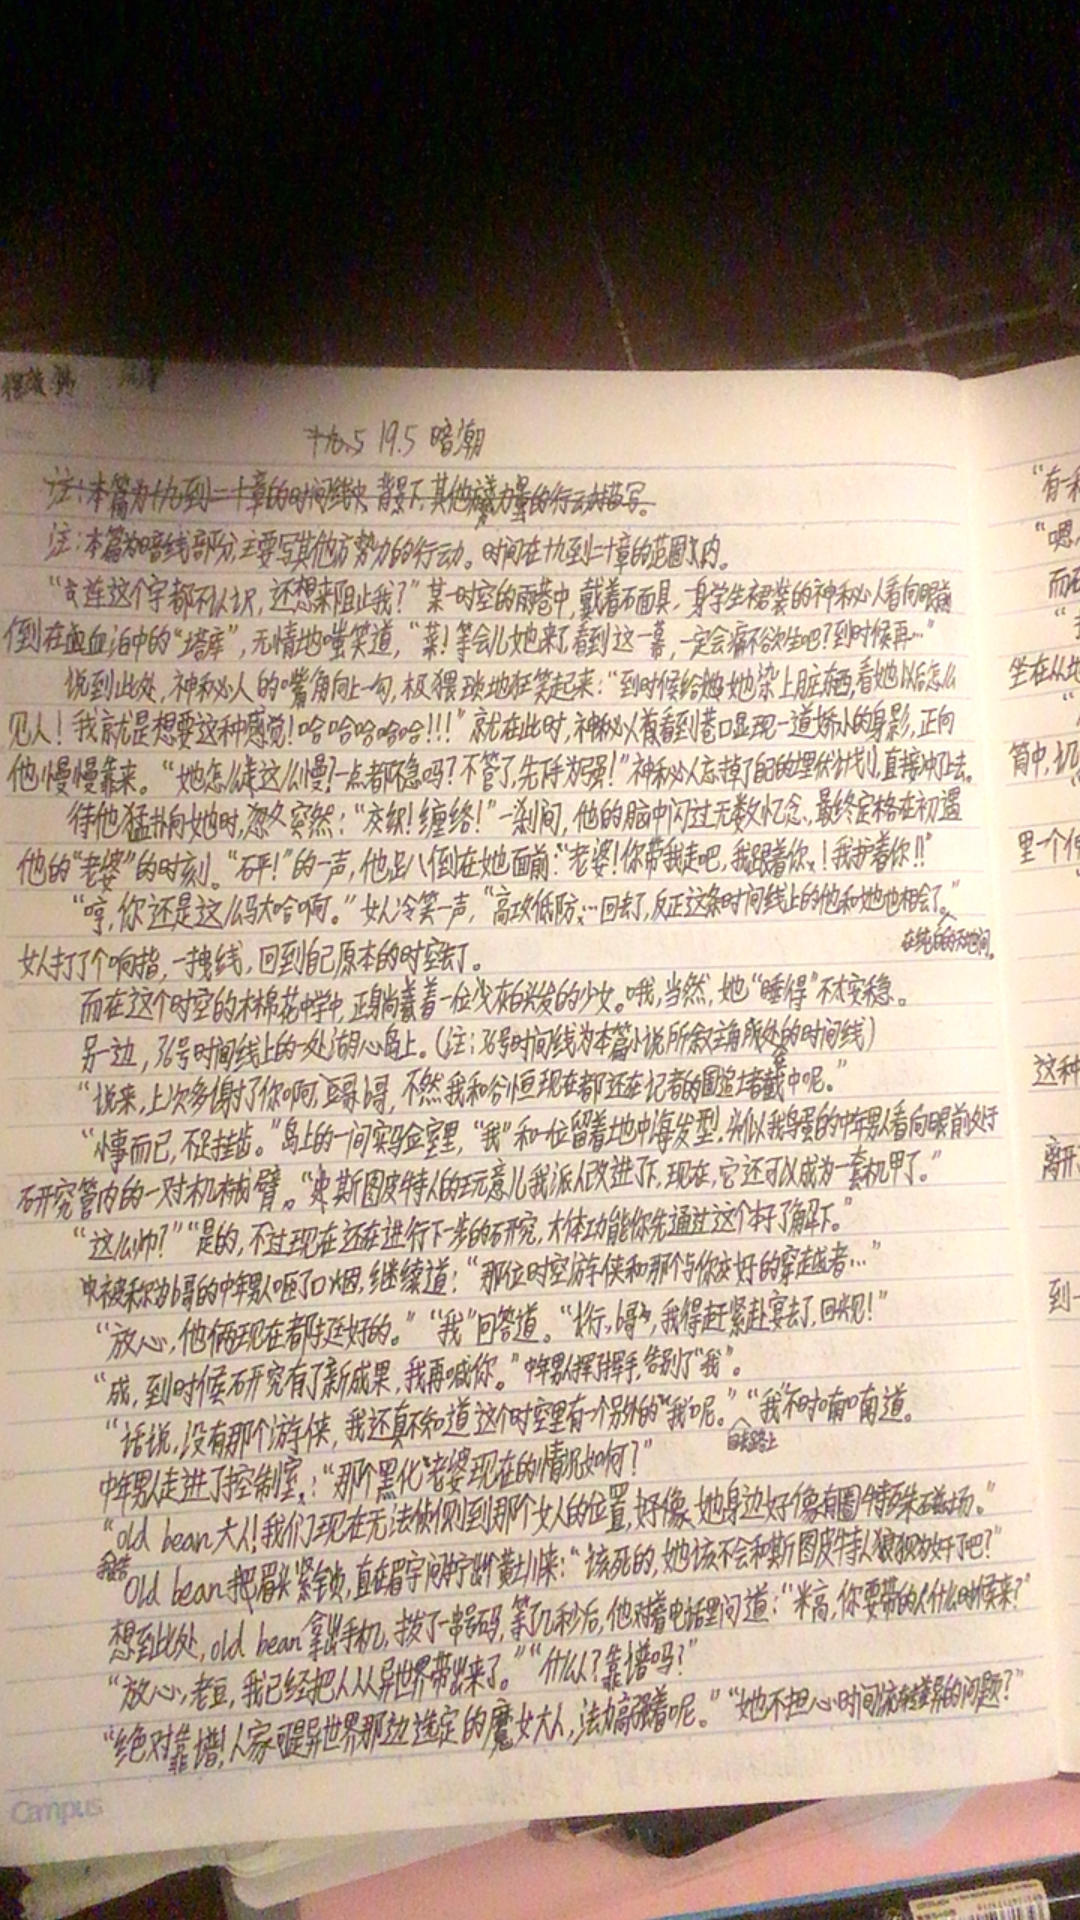 19.5 暗潮
注：本篇为十九到二十章的时间线中，背景下，其他力量的行动描写。
注：本篇为暗线部分，主要写其他方势力的行动。时间在十九到二十章的范围内。
“连这个字都不认识，还想来阻止我？”某一时空的雨巷中，戴着石面具，一身学生裙装的神秘人看向眼前
倒在血泊中的“塔库”，无情地嗤笑道，“菜！等会儿她来了，看到这一幕，一定会痛不欲生吧？到时候再…”
说到此处，神秘人的嘴角向上一勾，极猥琐地狂笑起来：“到时候给她染上脏东西，看她以后怎么
见人！我就是想要这种感觉！哈哈哈哈哈！！！”就在此时，神秘人看到巷口显现一道娇小的身影，正向
他慢慢靠来。“她怎么走这么慢？一点都不急吗？不管了，先下手为强！”神秘人忘掉了自己的埋伏计划，直接冲了上去。
待他猛扑向她时，突然：“交织！缠络！”一刹间，他的脑中闪过无数忆念，最终定格在初遇
他的“老婆”的时刻。“砰！”的一声，他趴倒在她面前：“老婆！你带我走吧，我跟着你！我护着你！！”
“哼，你还是这么马大哈啊。”女人冷笑一声，“高攻低防…回去了，反正这条时间线上的他和她也相会了。”
在纯白的天地间。
女人打了个响指，一拽线，回到自己原本的时空去了。
而在这个时空的木棉花中学中，正躺着一位灰白头发的少女。哦，当然，她“睡得”不太安稳。
另一边，36号时间线上的一处湖心岛上。（注：36号时间线为本篇小说所叙主角所处的时间线）
“说来，上次多谢了你啊，豆哥，不然我和谷恒现在都还在记者的围追堵截中呢。”
“小事而已，不足挂齿。”岛上的一间实验室里，“我”和一位留着地中海发型，光似我鸟蛋的中年男人看向眼前处于
研究管内的一对机械臂。“斯图皮特人的玩意儿我派人改进了下，现在，它还可以成为一套机甲了。”
“这么帅？”“是的，不过现在还在进行下一步的研究，大体功能你先通过这个本子了解下。”
被称为哥的中年男人咂了口烟，继续道：“那位时空游侠和那个与你交好的穿越者…”
“放心，他俩现在都挺好的。”“我”回答道。“行，哥，我得赶紧赴宴去了，回头见！”
“成，到时候研究有了新成果，我再喊你。”中年男人挥了挥手，告别了“我”。
“话说，没有那个游侠，我还真不知道这个时空里有一个另外的‘我’呢。”“我”不时喃喃道。
回去路上
中年男人走进了控制室：“那个黑化‘老婆’现在的情况如何？”
“报告old bean大人！我们现在无法侦测到那个女人的位置，好像她身边好像有圈特殊磁场。”
Old bean把眉头紧锁，直在眉宇间拧出个黄土小来：“该死的，她该不会和斯图皮特人狼狈为奸了吧？”
想到此处，old bean拿出手机，拨了一串号码，等了几秒后，他对着电话里问道：“米高，你要带的人什么时候来？”
“放心，老豆，我已经把人从异世界带出来了。”“什么人？靠谱吗？”
“绝对靠谱！人家可是异世界那边选定的魔女大人，法力高强着呢。”“她不担心时间流有差异的问题？”
Campus
“有
“嗯
而
坐在从
筒中，
里一个
这种
离开
到一